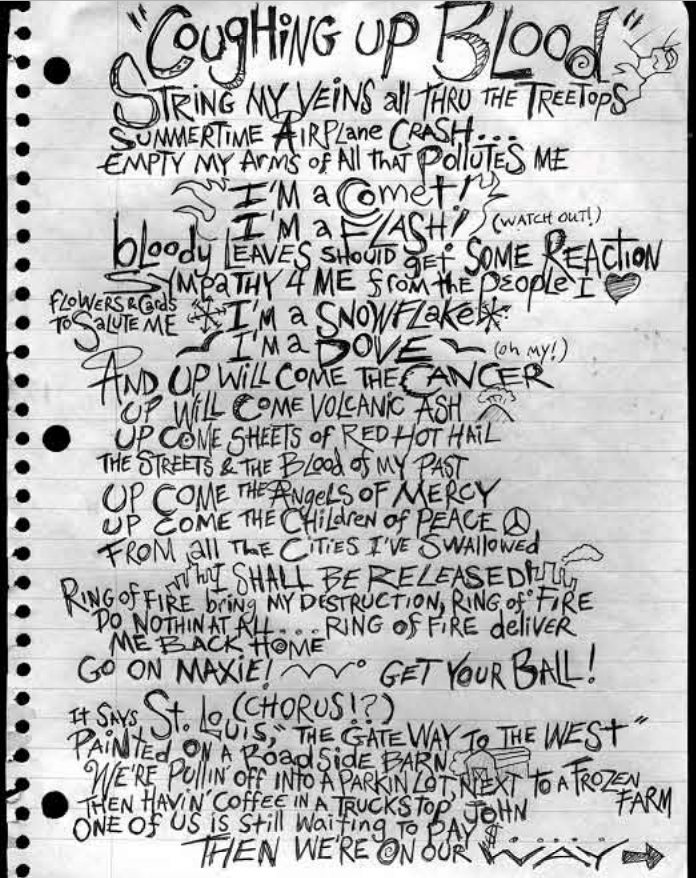 "COUGHING UP BLOOD"
STRING MY VEINS all THRU THE TREETOPS
SUMMERTIME AIRPLANE CRASH...
EMPTY MY ARMS of All THAT POLLUTES ME
I'M a COMET!
I'M a FLASH! (WATCH OUT!)
bloody LEAVES SHOULD get SOME REACTION
SYMPATHY 4 ME from the PEOPLE I ♥
FLOWERS & CARDS
TO SALUTE ME
I'M a SNOWFLAKE
I'M a DOVE (oh my!)
AND UP WILL COME THE CANCER
UP WILL COME VOLCANIC ASH
UP COME SHEETS of RED HOT HAIL
THE STREETS & THE BLOOD of MY PAST
UP COME THE ANGELS OF MERCY
UP COME THE CHILDREN of PEACE ☮
FROM all THE CITIES I'VE SWALLOWED
I SHALL BE RELEASED!
RING of FIRE bring MY DESTRUCTION, RING of FIRE
DO NOTHIN AT All.... RING of FIRE deliver
ME BACK HOME
GO ON MAXIE! GET YOUR BALL!
(CHORUS!?)
IT SAYS ST. LOUIS, "THE GATEWAY TO THE WEST"
PAINTED ON A ROADSIDE BARN
WE'RE PULLIN' off INTO A PARKIN LOT, NEXT TO A FROZEN
FARM
THEN HAVIN' COFFEE IN A TRUCKSTOP JOHN
ONE OF US IS STILL WAITING TO PAY $......
THEN WE'RE ON OUR WAY →